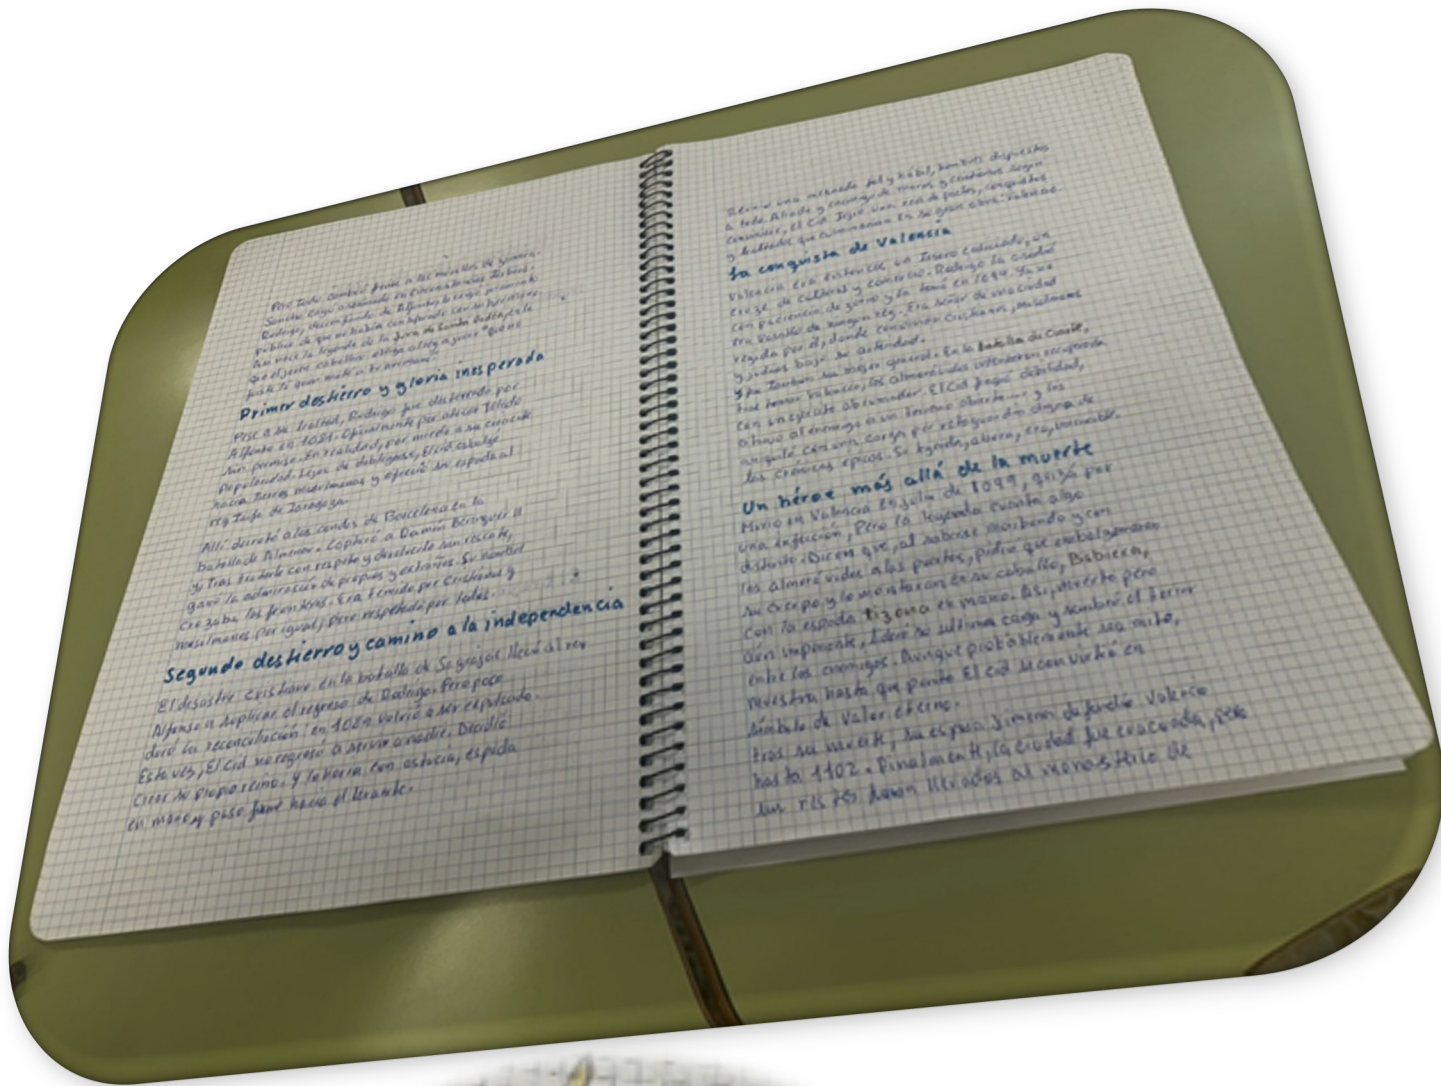 Pero todo cambió frente a las murallas de Zamora.
Sancho cayó asesinado en circunstancias turbias.
Rodrigo, desconfiando de Alfonso, le exigió juramento
público de que no había con su
Así nace la leyenda de la Jura de Santa Gadea, en la
que el joven caballero obliga al rey a jurar "que no
fuiste tú quien mató a tu hermano".
Primer destierro y gloria inesperada
Pese a su lealtad, Rodrigo fue desterrado por
Alfonso en 1081. Oficialmente por atacar Toledo
sin permiso. En realidad, por miedo a su creciente
popularidad. Lejos de doblegarse, El Cid cabalgó
hacia tierras musulmanas y ofreció su espada al
rey Taifa de Zaragoza.
Allí derrotó a los condes de Barcelona en la
batalla de Almenar. Capturó a Berenguer II
y, tras tratarle con respeto y devolverle sin rescate,
ganó la admiración de propios y extraños. Su nombre
cruzaba las fronteras. Era temido por cristianos y
musulmanes por igual, pero respetado por todos.
Segundo destierro y camino a la independencia
El desastre cristiano en la batalla de Sagrajas llevó al rey
Alfonso a suplicar el regreso de Rodrigo. Pero poco
duró la reconciliación: en 1089 volvió a ser expulsado.
Esta vez, El Cid no regresó a servir a nadie. Decidió
crear su propio reino. Y lo haría con astucia, espada
en mano y paso firme hacia el levante.
Reunió una mesnada fiel y hábil, hombres dispuestos
a todo. Aliado y enemigo de moros y cristianos según
conviniese, El Cid tejió una red de pactos, conquistas
y lealtades que culminarían en su gran obra: Valencia.
La conquista de Valencia
Valencia era entonces un tesoro codiciado, un
cruze de culturas y comercio. Rodrigo la asedió
con paciencia de zorro y la tomó en 1094. Ya no
era vasallo de ningún rey. Era señor de una ciudad
regida por él, donde convivían cristianos, musulmanes
y judíos bajo su autoridad.
Y fue también su mejor general. En la batalla de Cuarte,
tras tomar Valencia, los almorávides intentaron recuperarla
con un ejército abrumador. El Cid fingió debilidad,
atrajo al enemigo a un terreno abierto... y los
aniquiló con una carga por retaguardia digna de
las crónicas épicas. Su leyenda, ahora, era imparable.
Un héroe más allá de la muerte
Murió en Valencia en julio de 1099, quizá por
una infección, Pero la leyenda cuenta algo
distinto. Dicen que, al saberse moribundo y con
los almorávides a las puertas, pidió que embalsamaran
su cuerpo y lo montaran en su caballo, Babieca,
con la espada tizona en mano. Así, muerto pero
aún imponente, lideró su última carga y sembró el terror
entre los enemigos. Aunque probablemente sea mito,
muestra hasta qué punto El Cid se convirtió en
símbolo de valor eterno.
tras su muerte, su esposa Jimena defendió Valencia
hasta 1102. Finalmente, la ciudad fue evacuada, pero
sus restos fueron llevados al monasterio de